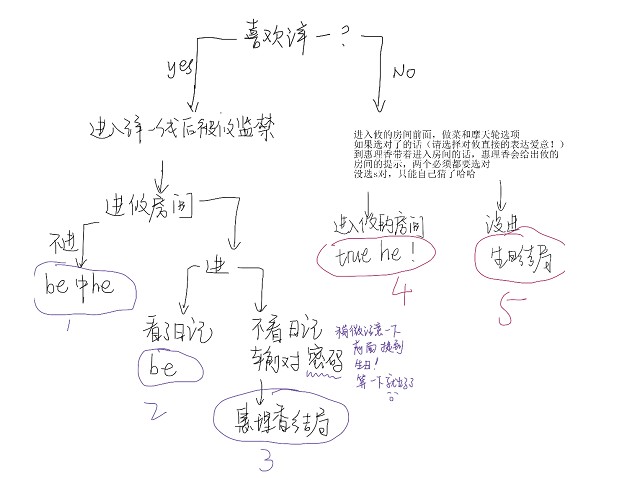 喜欢淳一？
yes
NO
进入淳一线后被攸监禁
进入攸的房间前面，做菜和摩天轮选项
如果选对了的话（请选择对攸直接的表达爱意！）
到惠理香带着进入房间的话，惠理香会给出攸的
房间的提示，两个必须都要选对
没选s对，只能自己猜了哈哈
进攸房间
不进
进
be中he
1
进入攸的房间
true he！
4
没进
生日结局
5
看了日记
be
2
不看日记
输对密码
稍微注意一下
前面提到
生日！
算一下就出了
惠理香结局
3